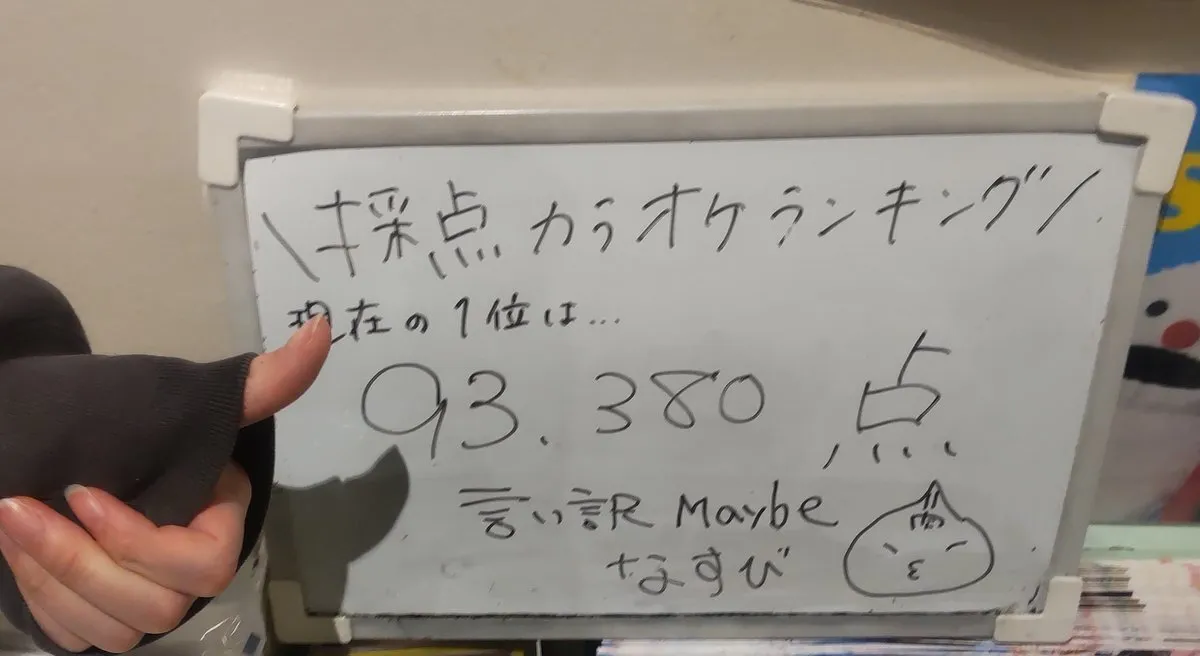 \採点カラオケランキング/
現在の1位は...
93.380 点
言い訳 Maybe
なすび